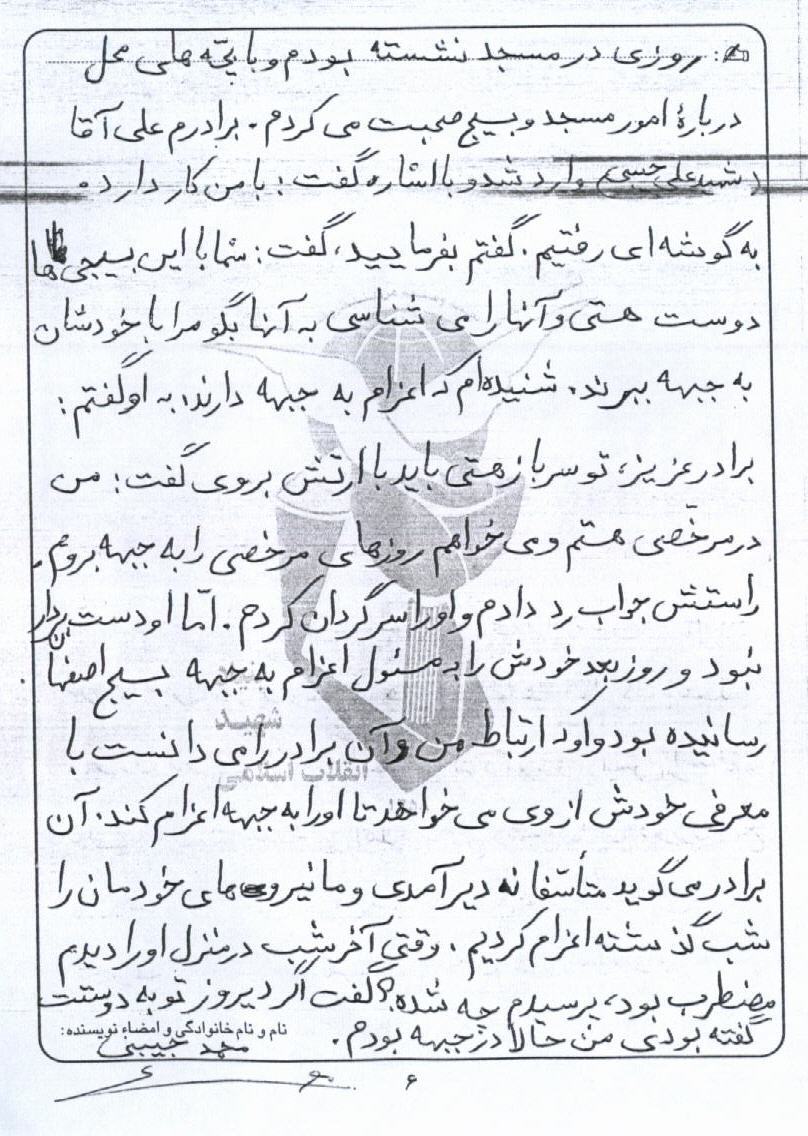 روزی در مسجد نشسته بودم و با بچّه های محل
دربارهٔ امور مسجد و بسیج صحبت می کردم. برادرم علی آقا
(شهید علی حبیبی) وارد شد و با اشاره گفت: با من کار دارد.
به گوشه ای رفتیم. گفتم بفرمایید، گفت: شما با این بسیجی ها
دوست هستی و آنها را می شناسی به آنها بگو مرا با خودشان
به جبهه ببرند. شنیده ام که اعزام به جبهه دارند. به او گفتم:
برادر عزیز، تو سرباز هستی باید با ارتش بروی گفت: من
در مرخّصی هستم و می خواهم روزهای مرخصی را به جبهه بروم.
راستش جواب رد دادم و او را سرگردان کردم. امّا او دست بردار
نبود و روز بعد خودش را به مسئول اعزام به جبهه بسیج اصفهان
رسانیده بود و او که ارتباط من و آن برادر را می دانست با
معرفی خودش از وی می خواهد تا او را به جبهه اعزام کند. آن
برادر می گوید متأسفانه دیر آمدی و ما نیروی های خودمان را
شب گذشته اعزام کردیم. وقتی آخر شب در منزل او را دیدم
مضطرب بود، پرسیدم چه شده؟ گفت اگر دیروز تو به دوستت
گفته بودی من حالا در جبهه بودم.
نام و نام خانوادگی و امضاء نویسنده:
محمد حبیبی
۶
شهید
انقلاب اسلامی